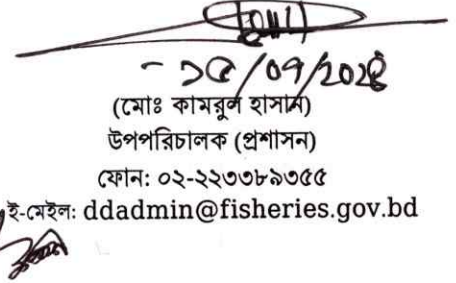 ১৫/০৭/২০২৪
(মোঃ কামরুল হাসান)
উপপরিচালক (প্রশাসন)
ফোন: ০২-২২৩৩৮৯৩৫৫
ই-মেইল: ddadmin@fisheries.gov.bd